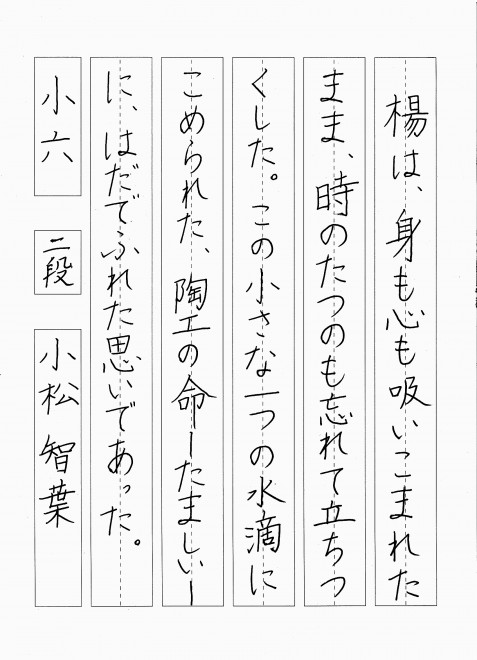 楊は、身も心も吸いこまれた
まま、時のたつのも忘れて立ちつ
くした。この小さな一つの水滴に
こめられた、陶工の命―たましい―
に、はだでふれた思いであった。
小六 二段 小松智葉